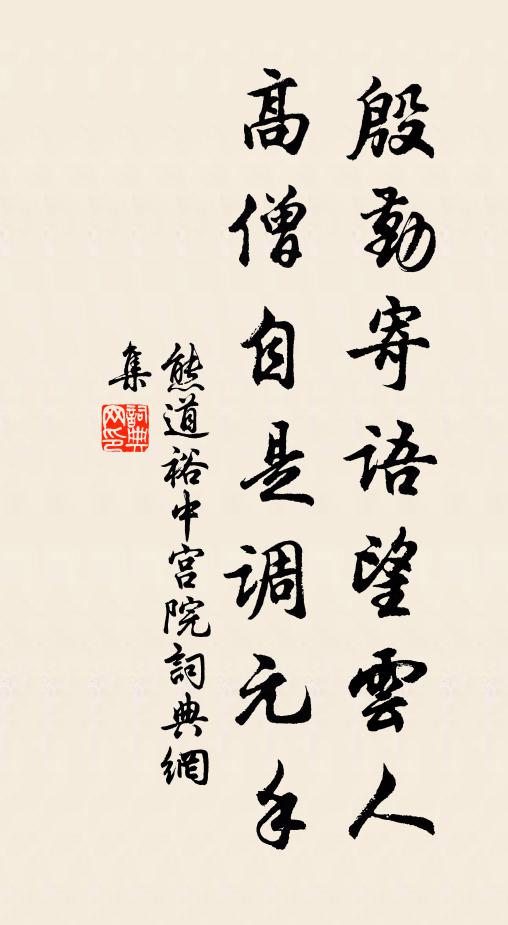 殷勤寄語望雲人
高僧自是调元手
熊道裕中宫院詞典網
集
詞典
网印